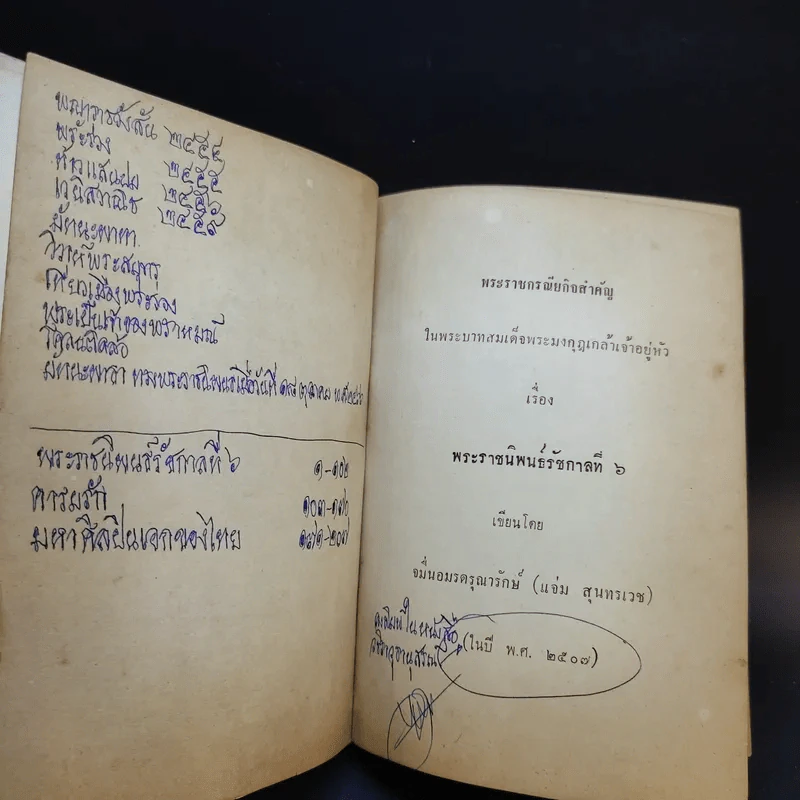 พญาราชวังสัน ๒๔๕๔
พระร่วง ๒๔๕๕
ท้าวแสนปม ๒๔๕๖
เวนิสวาณิช ๒๔๕๙
มัทนะพาธา
วิวาห์พระสมุทร
เที่ยวเมืองพระร่วง
พระเป็นเจ้าของพราหมณ์
โคลนติดล้อ
มัทนะพาธา ทรงพระราชนิพนธ์เมื่อวันที่ ตุลาคม
พระราชนิพนธ์รัชกาลที่ ๖ ๑-๑๐๒
ดารมรัก ๑๐๓-๑๗๐
มหาศิลปินเอกของไทย ๑๗๑-๒๐๗
พระราชกรณียกิจสำคัญ
ในพระบาทสมเด็จพระมงกุฎเกล้าเจ้าอยู่หัว
เรื่อง
พระราชนิพนธ์รัชกาลที่ ๖
เขียนโดย
จมื่นอมรดรุณารักษ์ (แจ่ม สุนทรเวช)
ลงพิมพ์ในหนังสือ
วชิราวุธานุสรณ์
(ในปี พ.ศ. ๒๕๐๗)